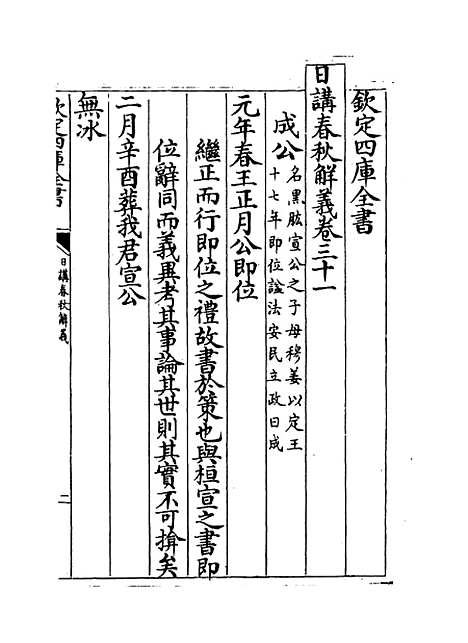 欽定四庫全書
日講春秋解義卷三十一
成公名黒肱宣公之子母穆姜以定王
十七年即位諡法安民立政曰成
元年春王正月公即位
繼正而行即位之禮故書於策也與桓宣之書即
位辭同而義異考其事論其世則其實不可揜矣
二月辛酉葬我君宣公
無冰
欽定四庫全書
日講春秋解義
二